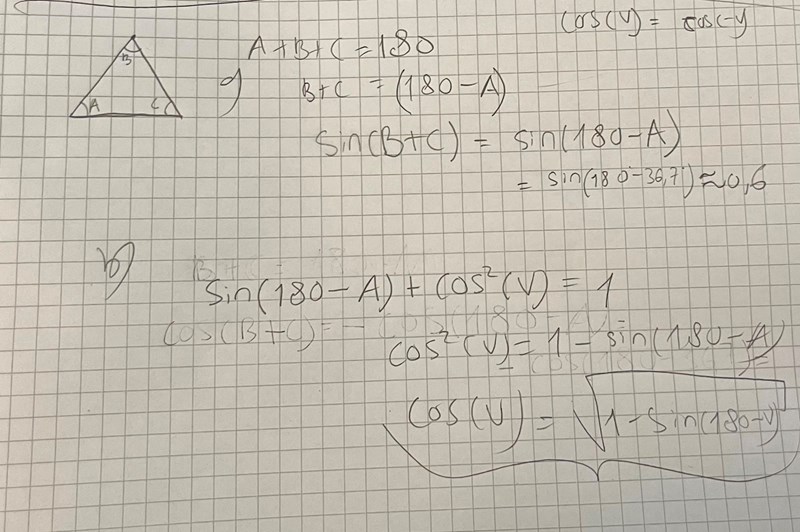 cos(v) = cos(-v
B
A
C
a) A+B+C = 180
B+C = (180-A)
Sin(B+C) = sin(180-A)
= sin(180-36,7) ≈ 0,6
b)
Sin(180-A) + Cos²(v) = 1
cos(B+C) = - cos(180-A)
Cos²(v) = 1 - sin(180-A)
Cos(v) = √1-Sin(180-v)